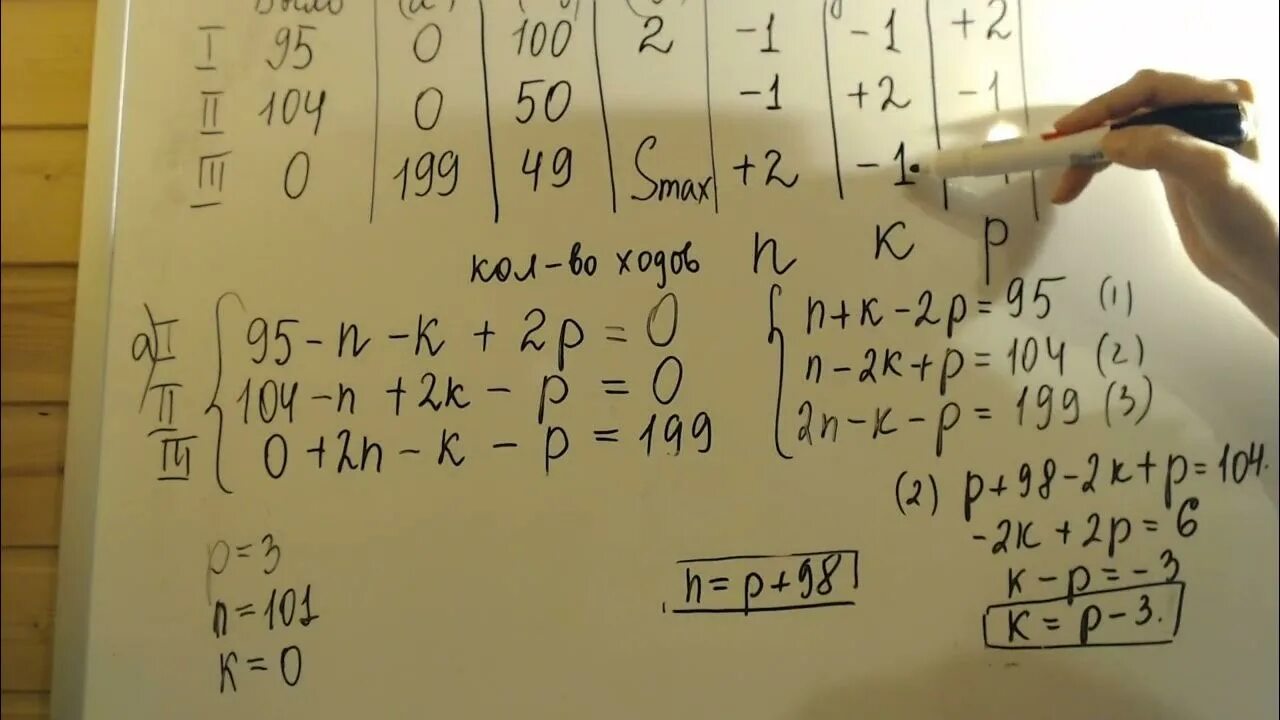 Было
I 95 0 100 2 -1 -1 +2
II 104 0 50 -1 +2 -1
III 0 199 49 Smax +2 -1
кол-во ходов n к p
a) I 95 - n - к + 2p = 0
II 104 - n + 2к - p = 0
III 0 + 2n - к - p = 199
n + к - 2p = 95 (1)
n - 2к + p = 104 (2)
2n - к - p = 199 (3)
(2) p + 98 - 2к + p = 104.
-2к + 2p = 6
к - p = -3
к = p - 3.
n = p + 98
p = 3
n = 101
к = 0